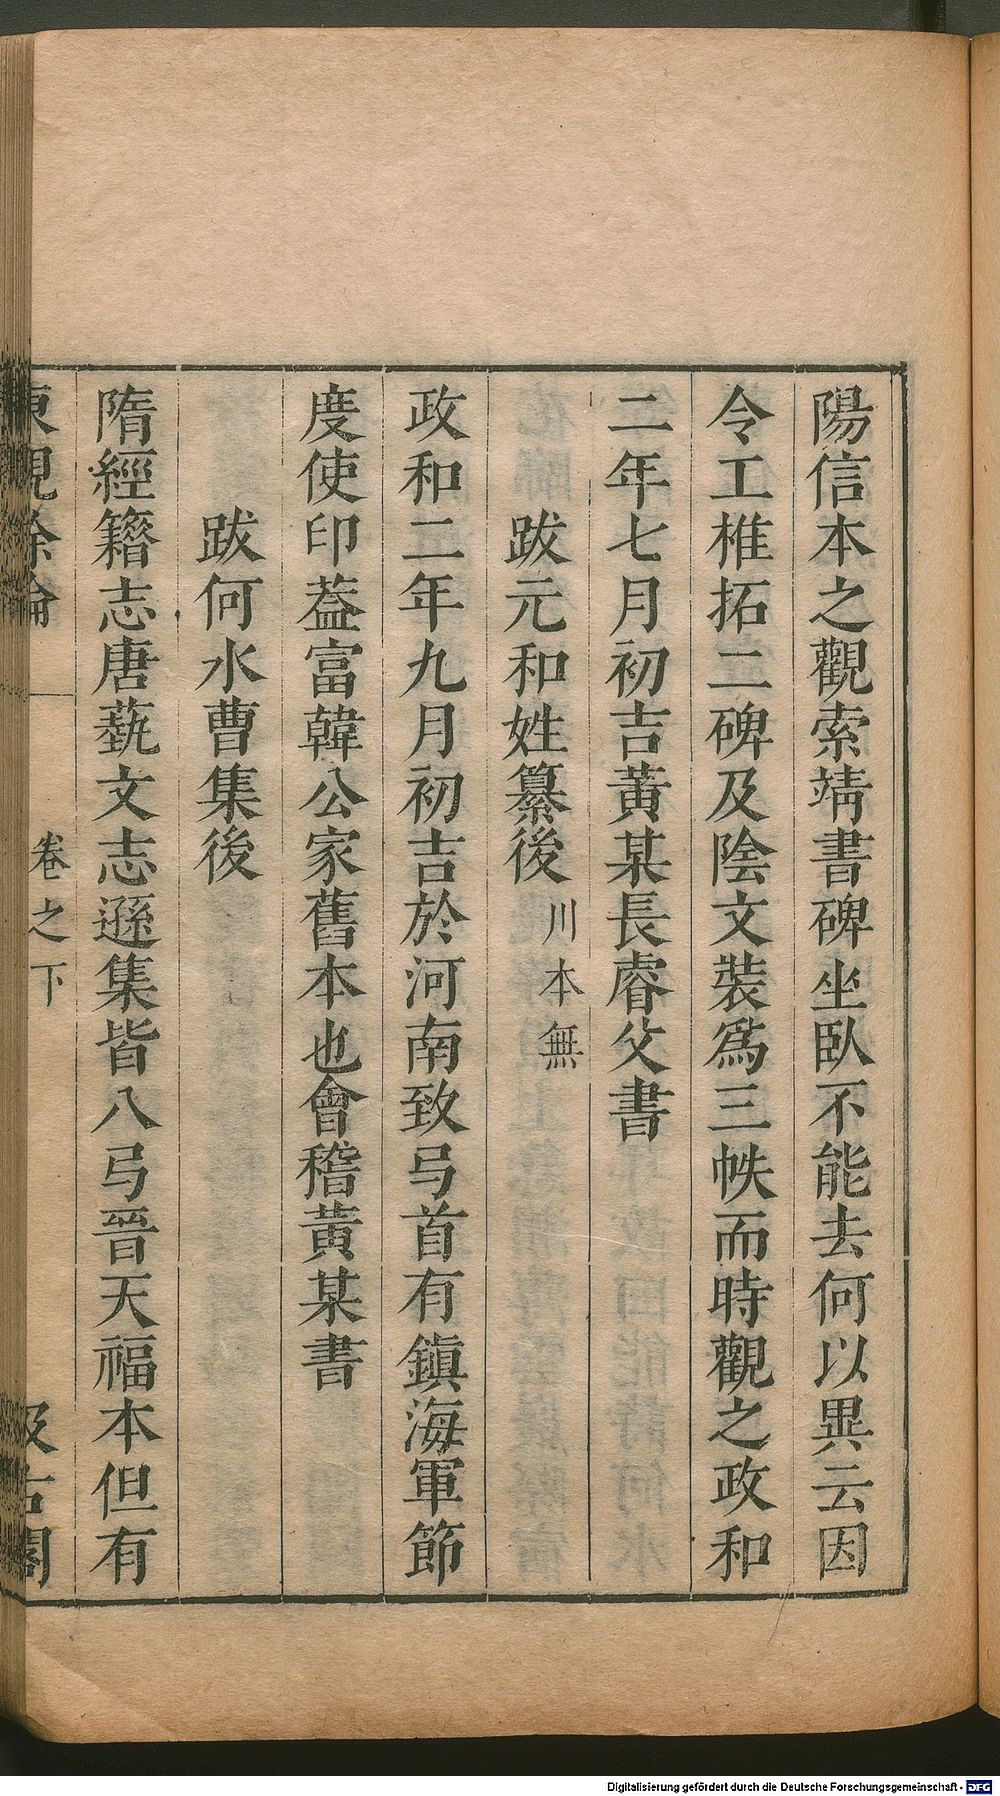 陽信本之觀索靖書碑坐臥不能去何以異云因
令工椎拓二碑及陰文裝爲三帙而時觀之政和
二年七月初吉黃某長睿父書
跋元和姓纂後 川本無
政和二年九月初吉於河南致㢧首有鎮海軍節
度使印葢富韓公家舊本也會稽黃某書
跋何水曹集後
隋經籍志唐藝文志遜集皆八㢧晉天福本但有
東觀餘論 卷之下 汲古閣
Digitalisierung gefördert durch die Deutsche Forschungsgemeinschaft - DFG